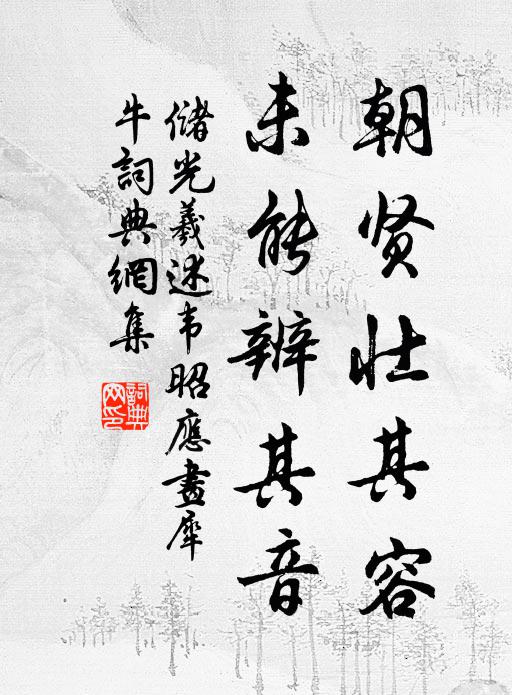 朝贤壮其容
未能辨其音
储光羲述韦昭应画犀
牛词典網集
詞典网印